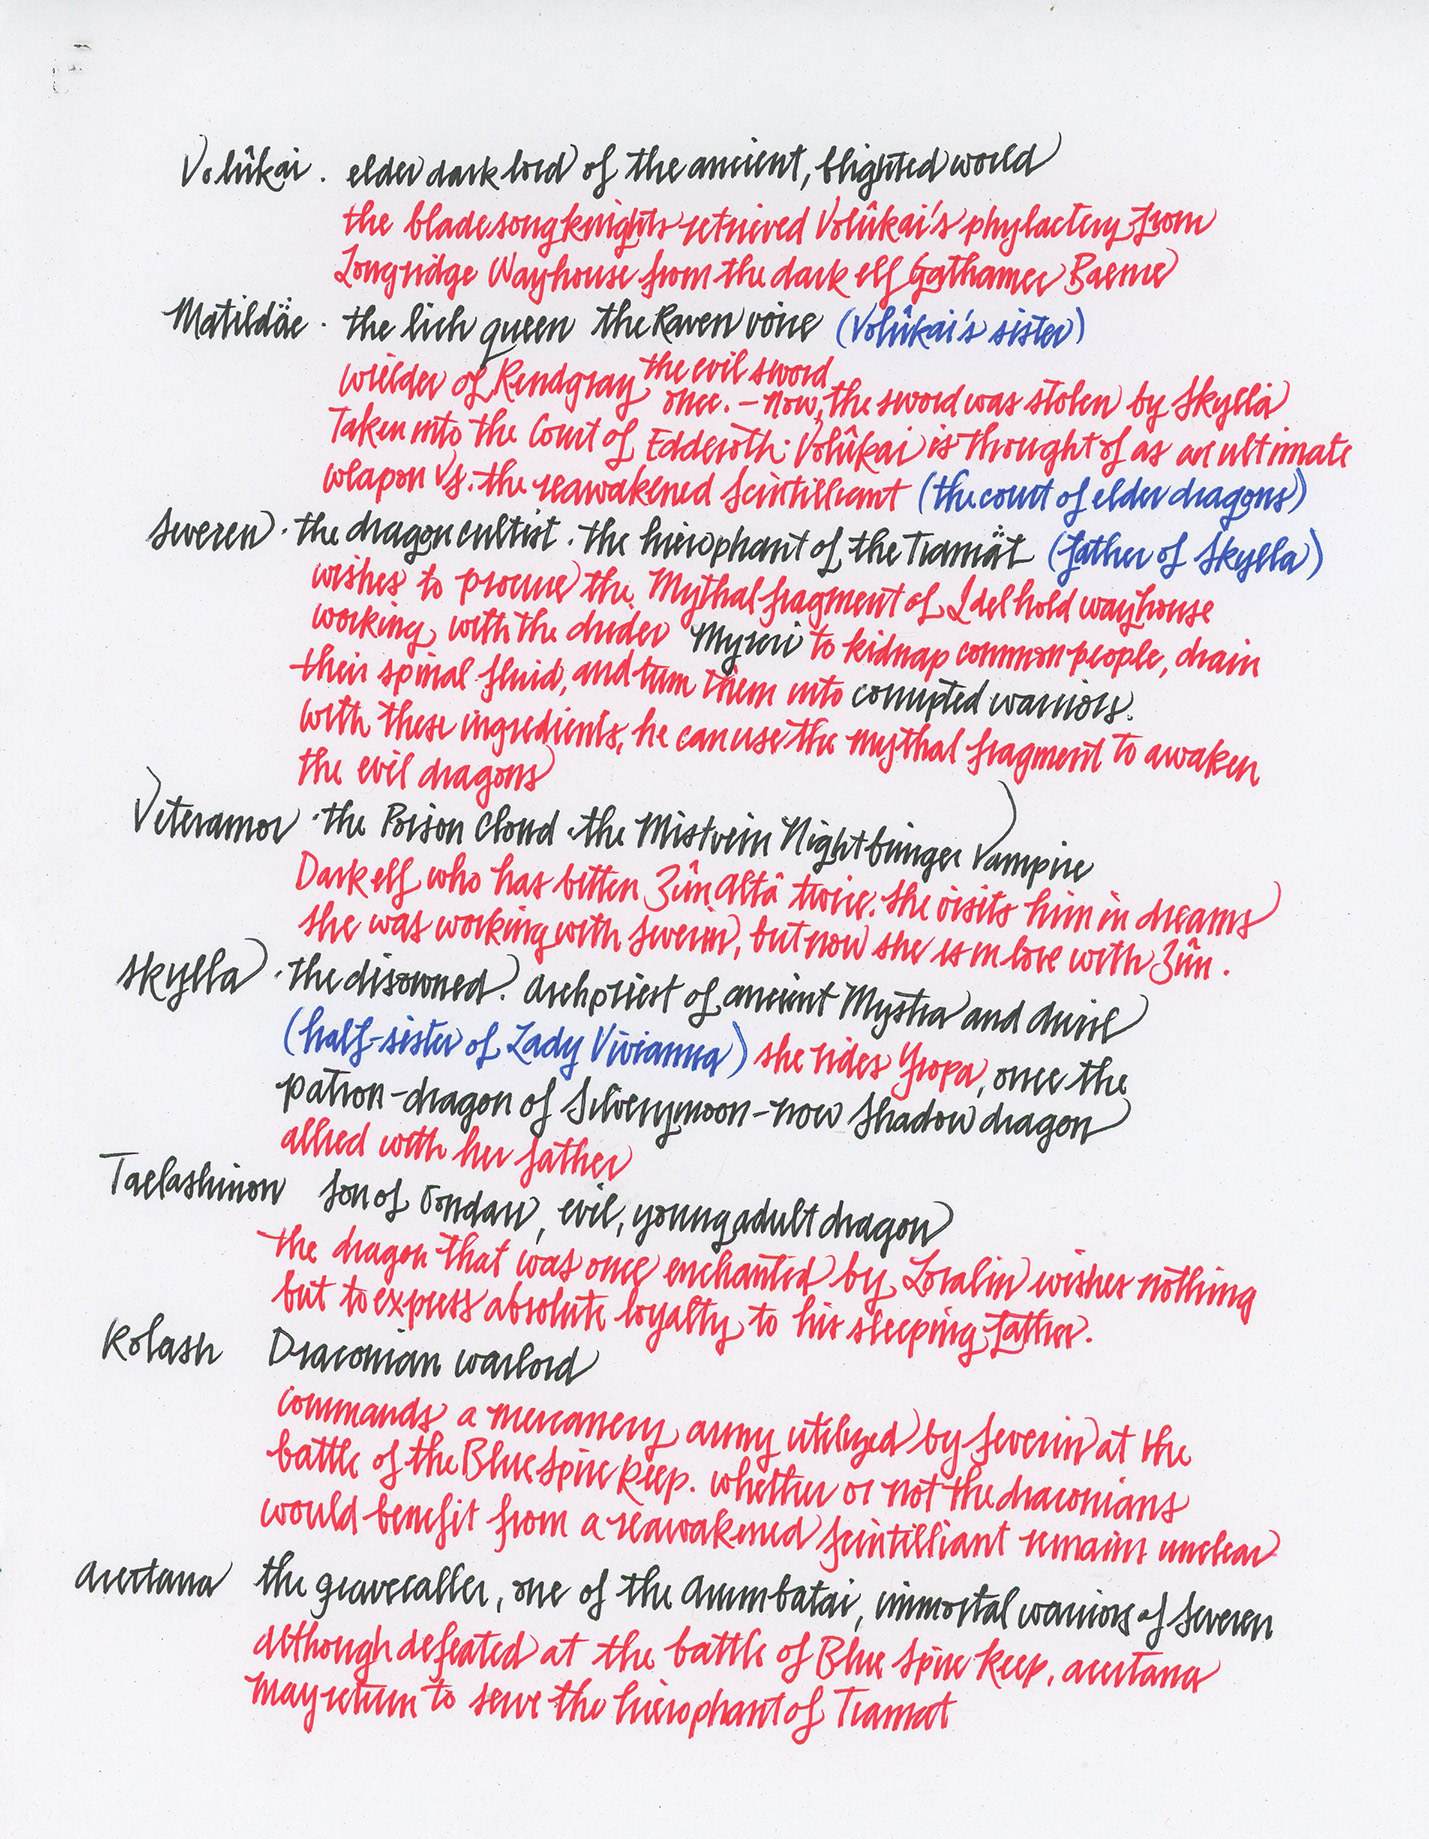 Volûkai · elder dark lord of the ancient, blighted world
the bladesong knights retrieved Volûkai's phylactery from
Longridge Wayhouse from the dark elf Gathamer Baenre
Matildäe · the lich queen the Raven voice (Volûkai's sister)
wielder of Rendgray the evil sword once. – now, the sword was stolen by Skylla
Taken into the Court of Edderoth · Volûkai is thought of as an ultimate
weapon vs. the reawakened Scintilliant (the court of elder dragons)
Severen · the dragon cultist · the hierophant of the Tiamät (father of Skylla)
wishes to procure the Mythal fragment of Idelhold wayhouse
working with the druder Myreri to kidnap common people, drain
their spinal fluid, and turn them into corrupted warriors.
with these ingredients, he can use the mythal fragment to awaken
the evil dragons
Veteramor · the Poison Cloud · the Mistvein Nightbringer Vampire
Dark elf who has bitten Zûn Altâ twice. she visits him in dreams
she was working with Severin, but now she is in love with Zûn.
Skylla · the disowned. archpriest of ancient Mystra and Auril
(half-sister of Lady Vivianna) she rides Yropa, once the
patron-dragon of Silverymoon – now shadow dragon
allied with her father
Taelashinon son of Tondarr, evil, young adult dragon
the dragon that was once enchanted by Loralin wishes nothing
but to express absolute loyalty to his sleeping father.
Kolash Draconian warlord
commands a mercanery army utilized by Severin at the
battle of the Blue Spire Keep. whether or not the draconians
would benefit from a reawakened Scintilliant remains unclear
arertana the gravecaller, one of the Arumbatai, immortal warriors of Severen
although defeated at the battle of Blue Spire Keep, arertana
may return to serve the hierophant of Tiamat